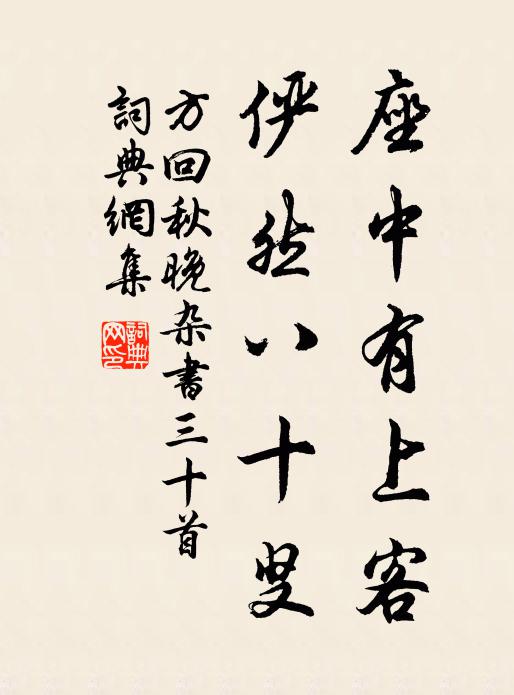 座中有上客
俨然八十叟
方回秋晚杂书三十首
詞典網集
詞典网印